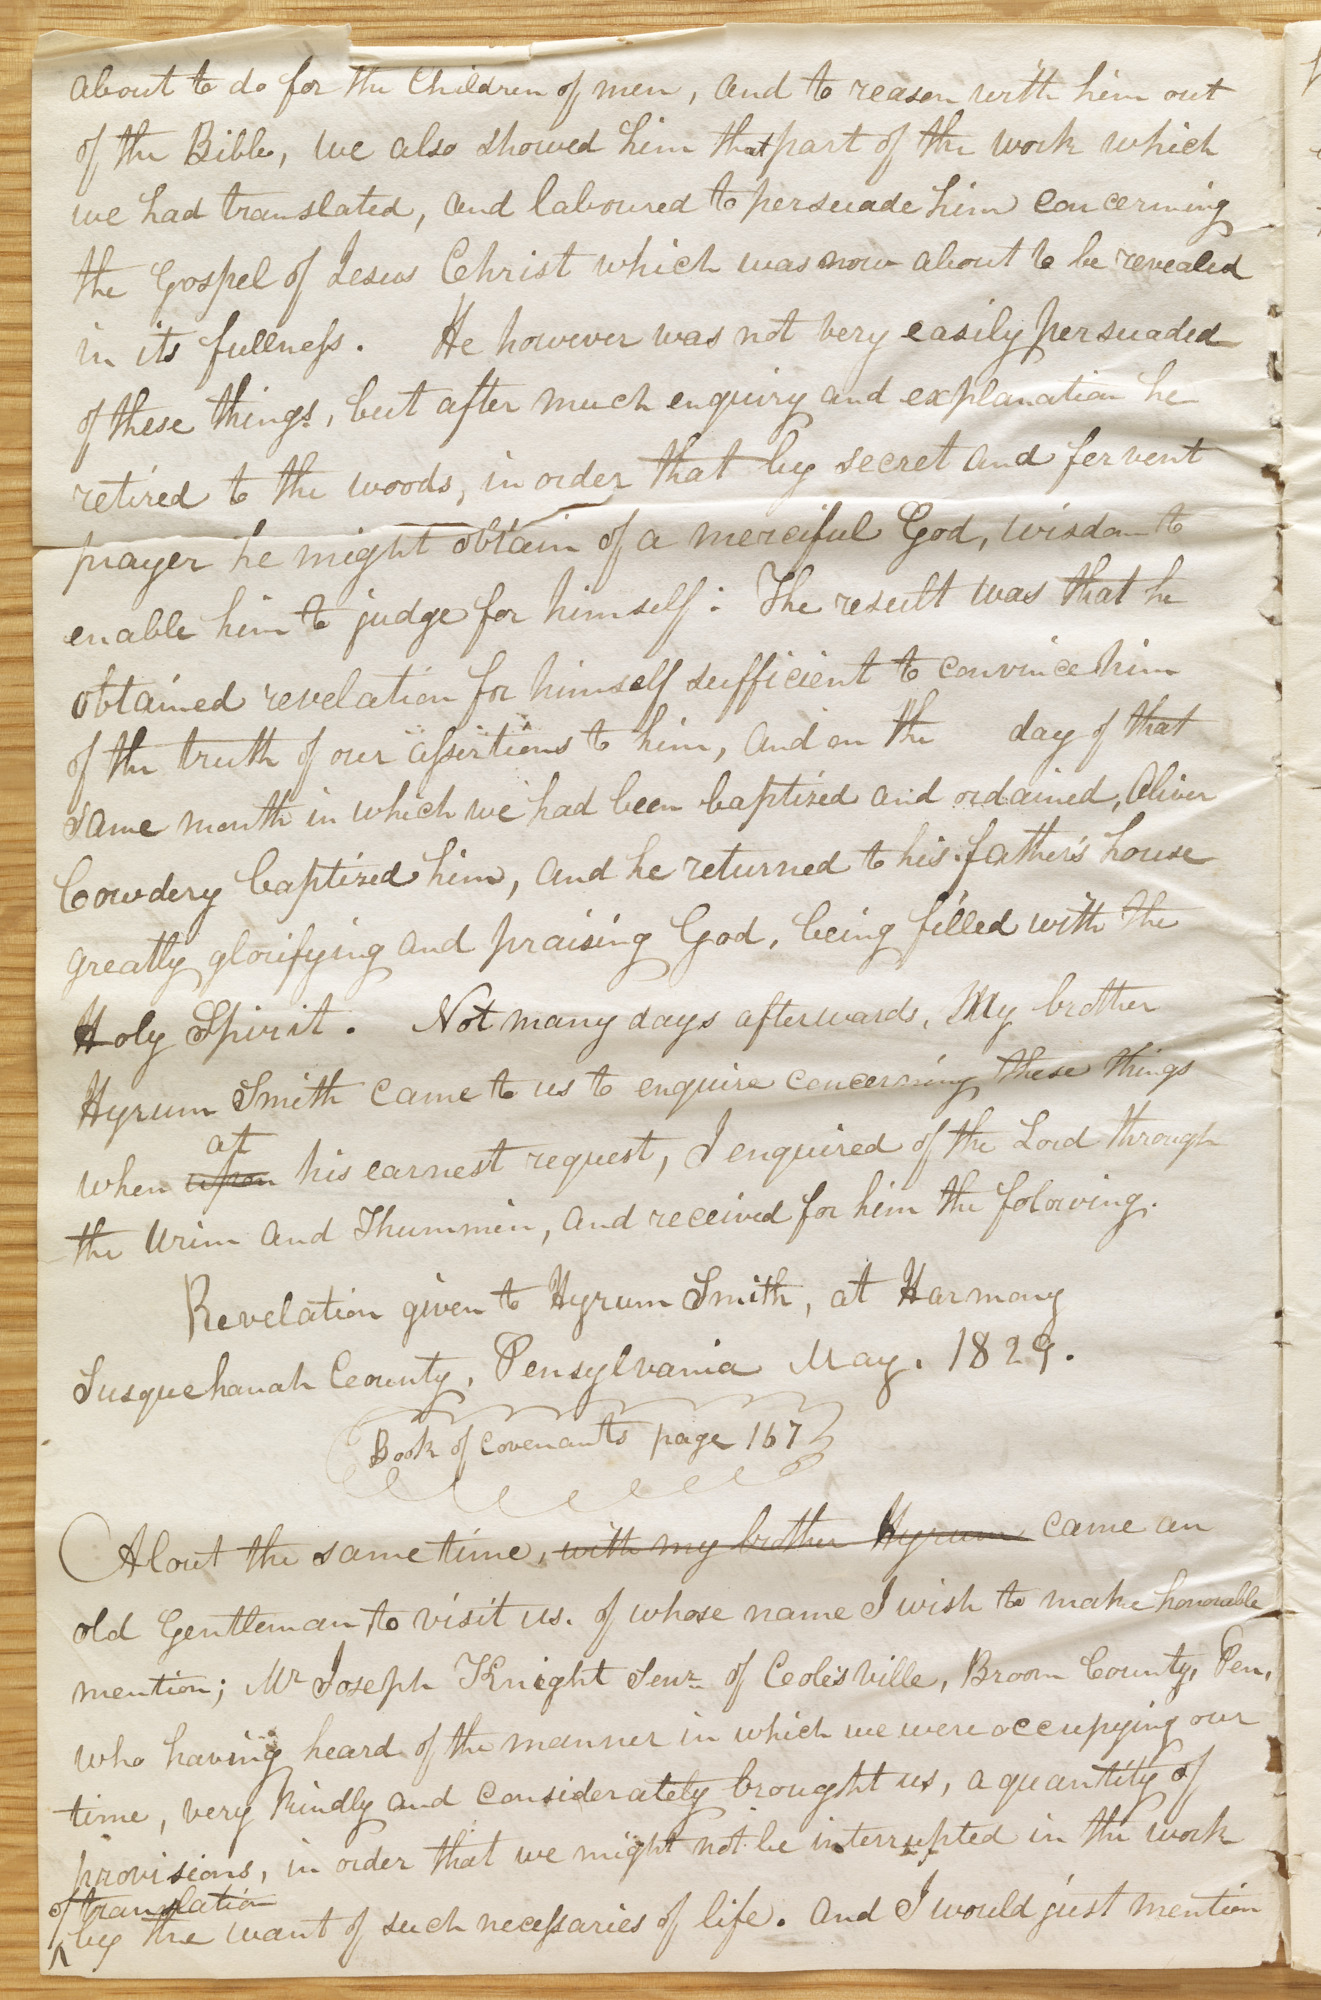 about to do for the Children of men, and to reason with him out
of the Bible, we also showed him that part of the work which
we had translated, and laboured to persuade him concerning
the Gospel of Jesus Christ which was now about to be revealed
in its fullness. He however was not very easily persuaded
of these things, but after much enquiry and explanation he
retired to the woods, in order that by secret and fervent
prayer he might obtain of a merciful God, wisdom to
enable him to judge for himself: The result was that he
obtained revelation for himself sufficient to convince him
of the truth of our assertions to him, and on the day of that
same month in which we had been baptized and ordained, Oliver
Cowdery baptized him, and he returned to his father's house
greatly glorifying and praising God, being filled with the
Holy Spirit. Not many days afterwards, My brother
Hyrum Smith came to us to enquire concerning these things
at
when upon his earnest request, I enquired of the Lord through
the Urim and Thummin, and received for him the folowing.
Revelation given to Hyrum Smith, at Harmony
Susquehanah County, Pensylvania May. 1829.
Book of covenants page 167
About the same time, with my brother Hyrum came an
old Gentleman to visit us. of whose name I wish to make honorable
mention; Mr Joseph Knight Senr of Colesville, Broom County, Pen,
who having heard of the manner in which we were occupying our
time, very kindly and considerately brought us, a quantity of
provisions, in order that we might not be interrupted in the work
of translation
by the want of such necessaries of life. And I would just mention